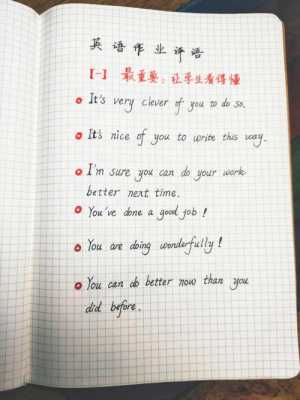 英语作业评语
【一】最重要：让学生看得懂
It's very clever of you to do so.
It's nice of you to write this way.
I'm sure you can do your work
better next time.
You've done a good job!
You are doing wonderfully!
You can do better now than you
did before.